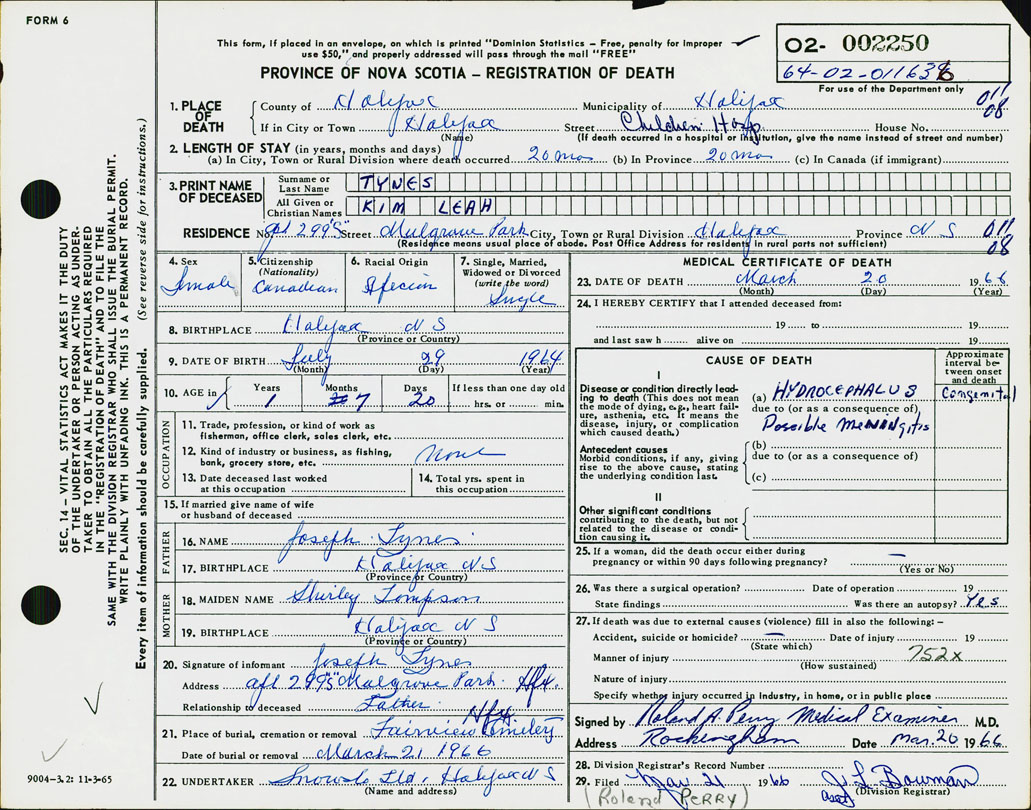 FORM 6
This form, if placed in an envelope, on which is printed "Dominion Statistics – Free, penalty for improper
use $50," and properly addressed will pass through the mail "FREE"
O2- 002250
64-02-01163
For use of the Department only
PROVINCE OF NOVA SCOTIA – REGISTRATION OF DEATH
1. PLACE OF DEATH
County of Halifax Municipality of Halifax 011 08
If in City or Town Halifax Street Children Hosp House No.
(Name) (If death occurred in a hospital or institution, give the name instead of street and number)
2. LENGTH OF STAY (in years, months and days)
(a) In City, Town or Rural Division where death occurred 20 mos (b) In Province 20 mos (c) In Canada (if immigrant)
3. PRINT NAME OF DECEASED
Surname or Last Name TYNES
All Given or Christian Names KIM LEAH
RESIDENCE No apt 299"5" Street Mulgrove Park City, Town or Rural Division Halifax Province N S 011 08
(Residence means usual place of abode. Post Office Address for residents in rural parts not sufficient)
4. Sex
5. Citizenship (Nationality) Canadian
6. Racial Origin
7. Single, Married, Widowed or Divorced (write the word) Single
8. BIRTHPLACE Halifax N S
(Province or Country)
9. DATE OF BIRTH July 29 1964
(Month) (Day) (Year)
10. AGE in Years 1 Months 7 Days 20 If less than one day old
hrs. or min.
OCCUPATION
11. Trade, profession, or kind of work as
fisherman, office clerk, sales clerk, etc.
12. Kind of industry or business, as fishing,
bank, grocery store, etc. None
13. Date deceased last worked
at this occupation
14. Total yrs. spent in
this occupation
15. If married give name of wife
or husband of deceased
FATHER
16. NAME Joseph Tynes
17. BIRTHPLACE Halifax N S
(Province or Country)
MOTHER
18. MAIDEN NAME Shirley Tompson
19. BIRTHPLACE Halifax N S
(Province or Country)
20. Signature of informant Joseph Tynes
Address apt 299"5" Mulgrove Park Hfx.
Relationship to deceased Father
21. Place of burial, cremation or removal Fairview Cemetery Hfx
Date of burial or removal March 21 1966
22. UNDERTAKER Snows Ltd, Halifax N S
(Name and address)
MEDICAL CERTIFICATE OF DEATH
23. DATE OF DEATH March 20 1966
(Month) (Day) (Year)
24. I HEREBY CERTIFY that I attended deceased from:
19 to 19
and last saw h alive on 19
CAUSE OF DEATH
Approximate interval between onset and death
I
Disease or condition directly lead-
ing to death (This does not mean
the mode of dying, e.g., heart fail-
ure, asthenia, etc. It means the
disease, injury, or complication
which caused death.)
(a) HYDROCEPHALUS Congenital
due to (or as a consequence of)
Possible meningitis
Antecedent causes
Morbid conditions, if any, giving
rise to the above cause, stating
the underlying condition last.
(b)
due to (or as a consequence of)
(c)
II
Other significant conditions
contributing to the death, but not
related to the disease or condi-
tion causing it.
25. If a woman, did the death occur either during
pregnancy or within 90 days following pregnancy? —
(Yes or No)
26. Was there a surgical operation? Date of operation 19
State findings Was there an autopsy? Yes
27. If death was due to external causes (violence) fill in also the following: –
Accident, suicide or homicide? — Date of injury 19
(State which)
Manner of injury 752x
(How sustained)
Nature of injury
Specify whether injury occurred in Industry, in home, or in public place
Signed by Roland A. Perry Medical Examiner M.D.
Address Rockingham Date Mar. 20 1966
28. Division Registrar's Record Number
29. Filed Mar. 21 1966 J L Bowman
(Division Registrar)
(Roland PERRY)
SEC. 14 – VITAL STATISTICS ACT MAKES IT THE DUTY
OF THE UNDERTAKER OR PERSON ACTING AS UNDER-
TAKER TO OBTAIN ALL THE PARTICULARS REQUIRED
IN THE "REGISTRATION OF DEATH" AND TO FILE THE
SAME WITH THE DIVISION REGISTRAR WHO SHALL ISSUE THE BURIAL PERMIT.
WRITE PLAINLY WITH UNFADING INK. THIS IS A PERMANENT RECORD.
Every item of information should be carefully supplied. (See reverse side for instructions.)
9004-3.2: 11-3-65